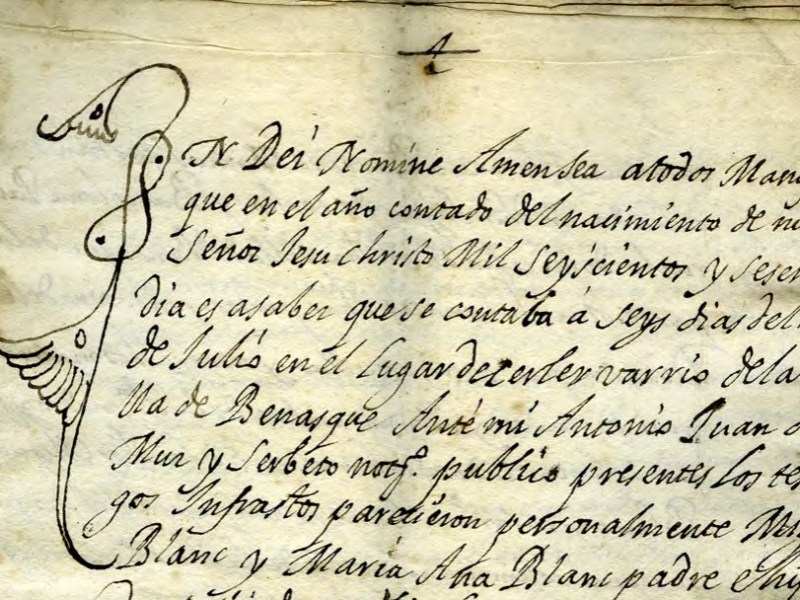 IN Dei Nomine Amen Sea a todos Mani
que en el año contado del nacimiento de nu
Señor Jesu Christo Mil Seyscientos y Sesen
dia es a saber que se contaba á seys dias del
de Julio en el Lugar de cerler varrio de la
lla de Benasque Ante mi Antonio Juan
Mur y Serbeto notº. publico presentes los tes
gos Infrastos parecieron personalmente
Blanc y Maria Ana Blanc padre e hij